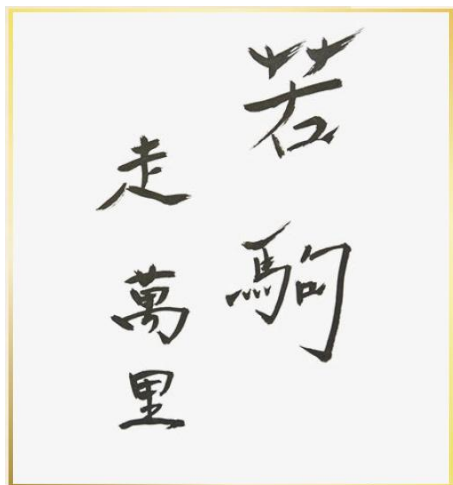 若駒
走萬里